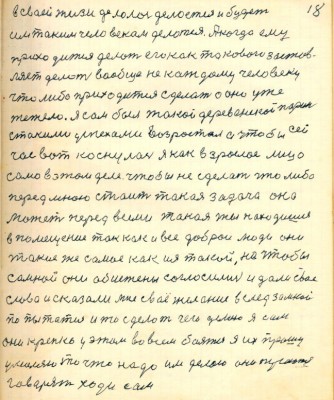 18
в своей жизни делолос делоется и будет
им таким человекам делотся. Иногда ему
приходится делот его как токового застов-
ляет делот вообще не каждому человеку
что либо приходится сделат а оно уже
тежело. Я сам был такой деревенской парен
с такими духами возростал а чтобы сей
час вот коснулас я как взрослое лицо
само в этом деле чтобы не сделат что либо
передмною стоит такая задача она
может перед всеми такая же находится
в помещение так как и все доброи люди они
такие же самое как и я такой, но чтобы
самной они общены согласилис и дали свае
слова и сказали мне сваё желание вслед замной
попытатся и то сделот чего делаю я сам
они крепко у этом во всем баятся я их прошу
умоляю то что надо им делою они
говарят ходи сам